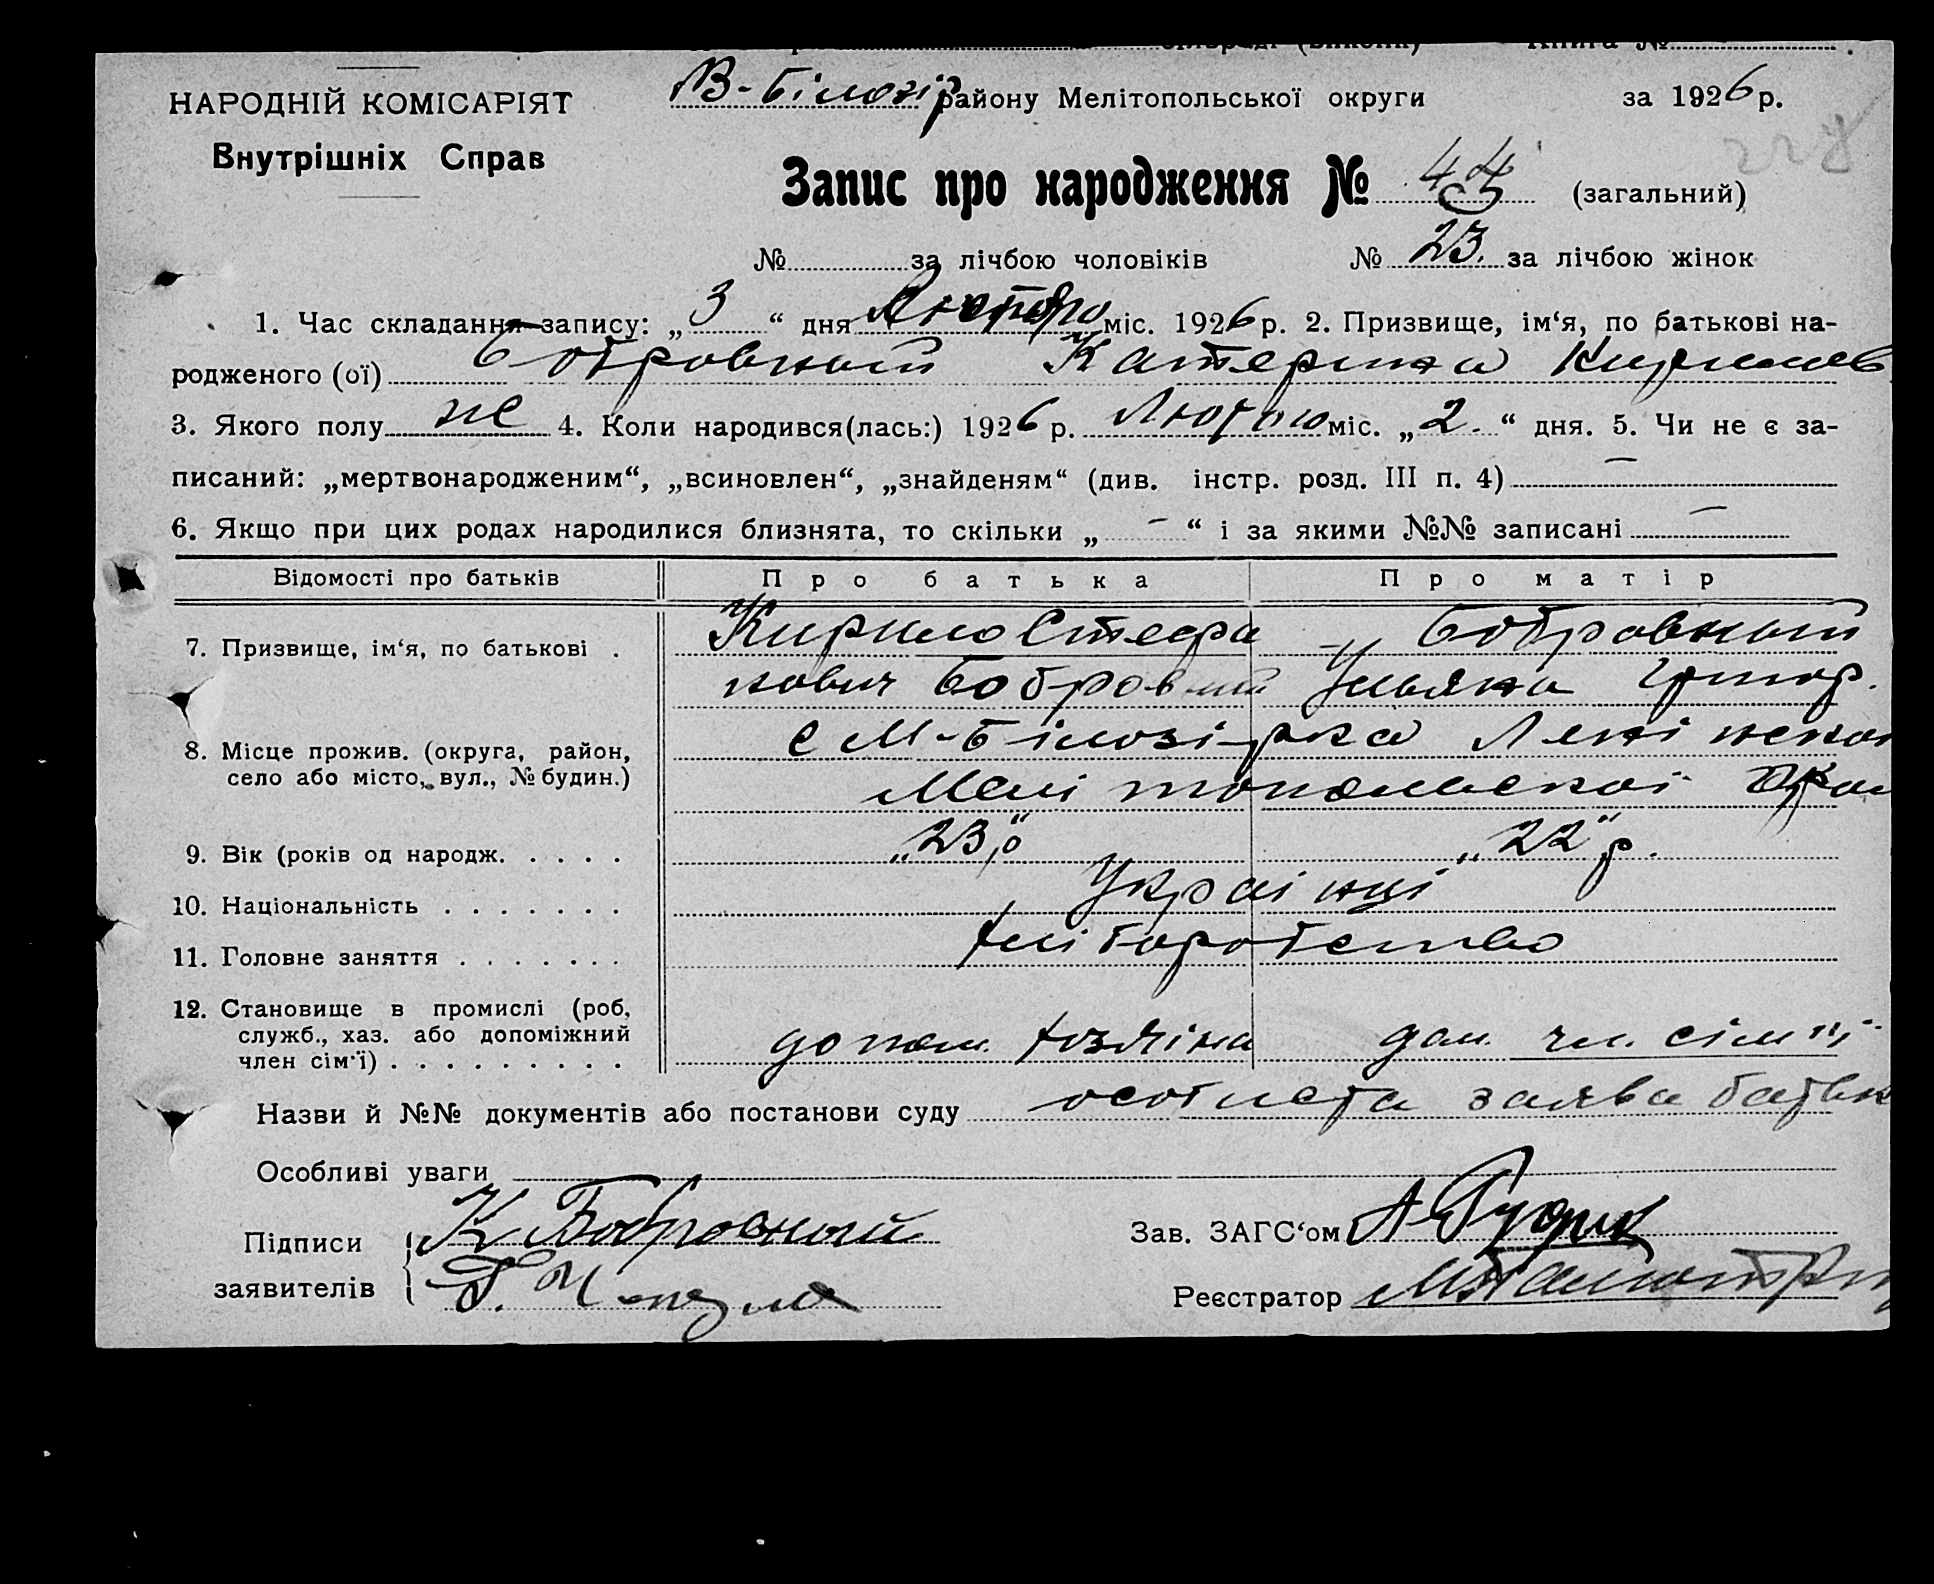 НАРОДНІЙ КОМІСАРІЯТ
Внутрішніх Справ
В-Білозір району Мелітопольської округи за 1926 р.
Запис про народження № (загальний)
№ за лічбою чоловіків № 23. за лічбою жінок
1. Час складання запису: „3“ дня Лютого міс. 1926 р. 2. Призвище, ім‘я, по батькові на-
родженого (ої) Бобровный Катерина Кирилов
3. Якого полу же 4. Коли народився(лась:) 1926 р. Лютого міс. „2.“ дня. 5. Чи не є за-
писаний: „мертвонародженим“, „всиновлен“, „знайденям“ (див. інстр. розд. III п. 4) —
6. Якщо при цих родах народилися близнята, то скільки „ - “ і за якими №№ записані —
Відомості про батьків Про батька Про матір
7. Призвище, ім‘я, по батькові . Кирило Стефа Бобровный
нович Бобровний Ульяна Григор.
8. Місце прожив. (округа, район, с М-Білозірка Ленінської
село або місто, вул., № будин.) Мелітопольської Окр
9. Вік (років од народж. . . . . „23„р „22„р.
10. Національність . . . . . . . Українці
11. Головне заняття . . . . . . . хліборобство
12. Становище в промислі (роб,
служб., хаз. або допоміжний допом. хозяїна доп. чл. сім'ї
член сім'ї) . . . . . . . . .
Назви й №№ документів або постанови суду особиста заява батьк
Особливі уваги
Підписи К Бобровный Зав. ЗАГС‘ом А
заявителів Реєстратор